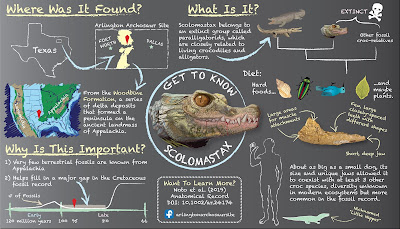 Where Was It Found?
Arlington Archosaur Site
Texas
FORT
WORTH
DALLAS
From the Woodbine
Formation, a series
of delta deposits
that formed a
peninsula on the
ancient landmass
of Appalachia.
Why Is This Important?
1) Very few terrestrial fossils are known from
Appalachia
2) Helps fill in a major gap in the Cretaceous
fossil record
# of Fossils
Early
Late
120 million years
100
95
66
GET TO KNOW
SCOLOMASTAX
Want To Learn More?
Noto et al. (2019)
Anatomical Record
DOI: 10.1002/ar.24176
arlingtonarchosaursite
What Is It?
Scolomastax belongs to
an extinct group called
paralligatorids, which
are closely related to
living crocodiles and
alligators.
EXTINCT
Other fossil
croc-relatives
Diet:
Hard
foods...
...and
maybe
plants.
Large areas
for muscle
attachments
Few, large
closely-spaced
teeth with
different shapes
Short, deep jaw
About as big as a small dog, its
size and unique jaws allowed it
to coexist with at least 3 other
croc species, diversity unknown
in modern ecosystems but more
common in the fossil record.